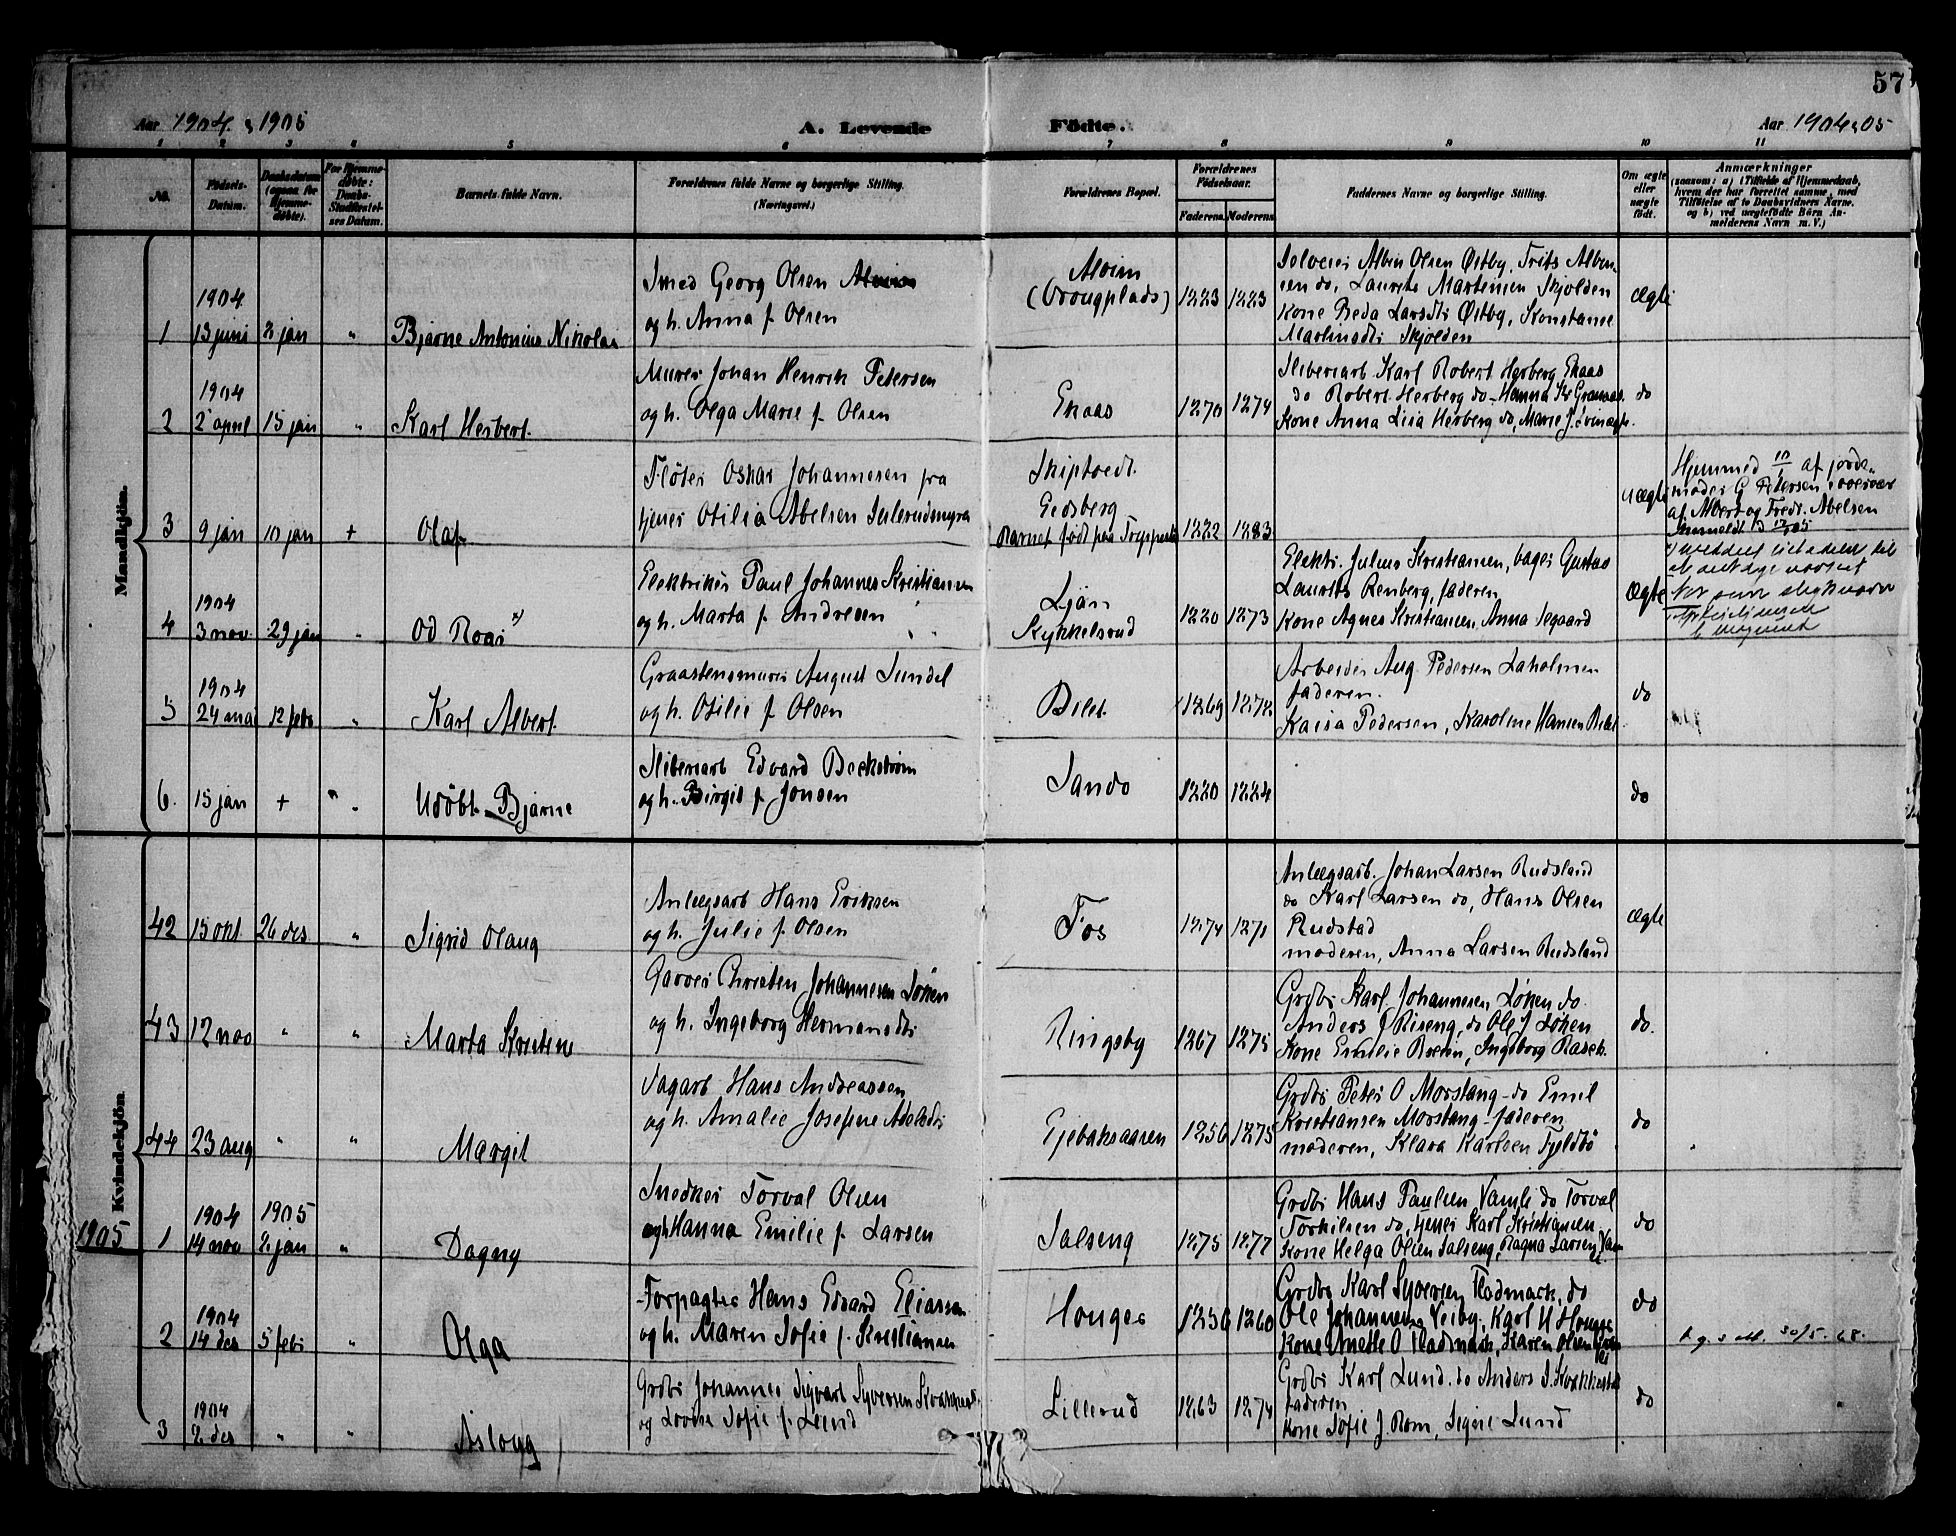 57
Aar 1904 & 1905
A. Levende
Födte.
Aar 1904 & 05
1 2 3 4 5 6 7 8 9 10 11
No.
Födsels-
Datum.
Daabsdatum
(ogsaa for
Hjemme-
döbte).
For Hjemme-
döbte:
Daabs-
Stadfæstel-
ses Datum.
Barnets fulde Navn.
Forældrenes fulde Navne og borgerlige Stilling.
(Næringsvei.)
Forældrenes Bopæl.
Forældrenes
Födselsaar.
Faderens. Moderens.
Faddernes Navne og borgerlige Stilling.
Om ægte
eller
uægte
födt.
Anmærkninger
(saasom: a) i Tilfælde af Hjemmedaab,
hvem der har forrettet samme, med
Tilföielse af to Daabsvidners Navne.
og b) ved uægtefödte Börn An-
melderens Navn m. V.)
Mandkjön.
1
1904
13 juni
2 jan
"
Bjarne Antonius Nikolai
Smed Georg Olsen Alvim
og h. Anna f. Olsen
Alvim
1883 1883
Selveier Albin Olsen Østby, Frits Albin-
sen do, Laurits Martinsen Skjolden
Kone Beda Larsdtr Østby, Konstance
Martinsdtr Skjolden
ægte
2
1904
2 april
15 jan
"
Karl Herbert
Murer Johan Henrik Petersen
og h. Olga Marie f. Olsen
Enaas
1870 1874
Sliberiarb Karl Robert Herberg Enaas
do Robert Herberg do
Kone Anna Lisa Herberg do, Marie J.
do
3
9 jan
10 jan
+
Olaf
Fløter Oskar Johannesen fra
tjener Otilia Abelsen
Skiptvedt
Eidsberg
Barnet født paa
1882 1883
uægte
Hjemmed 10/1 af jorde-
moder G Petersen, overvær
af Albert og Fredr. Abelsen
4
1904
3 nov
29 jan
"
Od Roar x)
Elektriker Paul Johannes Kristiansen
og h. Marta f. Andresen
Ljan
Kykkelsrud
1880 1873
Elektr. Julius Kristiansen, bager Gustav
Laurits Renberg, faderen
Kone Agnes Kristiansen, Anna Segaard
ægte
5
1904
24 mai
12 febr
"
Karl Albert
Graastensmurer August Sundel
og h. Otilie f. Olsen
Bilet
1869 1872
Arbeider Aug. Pedersen Laholmen
faderen.
Kaisa Pedersen, Karoline Hansen Bilet
do
6.
15 jan
+
"
Udöbt Bjarne
Sliberiarb Edvard Beckström
og h. Birgit f. Jonsen
Sando
1880 1884
do
Kvindekjön.
42
15 okt
26 des
"
Sigrid Olaug
Anlægsarb Hans Eriksen
og h. Julie f. Olsen
Fos
1874 1871
Anlægsarb. Johan Larsen Rudsland
do Karl Larsen do, Hans Olsen
Rudstad
moderen, Anna Larsen Rudsland
ægte
43
12 nov
"
"
Marta Kristine
Garver Christen Johannesen Löken
og h. Ingeborg Hermansdtr
Ringsby
1867 1875
Grdbr Karl Johannesen Löken do.
Anders J Riseng, do Ole J Löken
Kone Emilie Brenn, Ingeborg Rasck.
do.
44
23 aug
"
"
Margit
Dagarb Hans Andreassen
og h. Amalie Josefine
1856 1875
Grdbr Peter O Morstang do Emil
Kristiansen Morstang faderen
moderen, Klara Karlsen Fjeldbö
do
1905
1
1904
14 nov
1905
2 jan
"
Dagny
Snedker Torval Olsen
og h Hanna Emilie f. Larsen
Salseng
1875 1877
Grdbr Hans Paulsen Vamli do Torval
Torkilsen do, tjener Karl Kristiansen
Kone Helga Olsen Salseng, Ragna Larsen
do
2
1904
14 des
5 febr
"
Olga
Forpagter Hans Edvard Eliassen
og h. Maren Sofie f. Kristiansen
Houger
1856 1860
Grdbr Karl Syversen Fladmark, do
Ole Johannesen Veiby, Karl H Houger
Kone Anette O Fladmark, Karen Olsen
do
30/5-68.
3
1904
2 des
"
"
Aslaug
Grdbr Johannes Sigvart Syversen
og Lovise Sofie f. Lund
Lillerud
1863 1874
Grdbr Karl Lund. do Anders S.
faderen
Kone Sofie J. Rom, Signe Lund
do